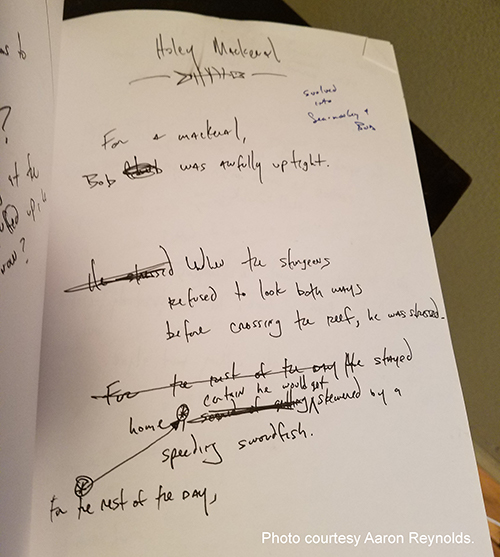 Holey Mackeral
evolved
into
Sea-monkey &
Bob
For a mackeral,
Bob was awfully uptight.
He stressed When the sturgeons
refused to look both ways
before crossing the reef, he was stressed.
For the rest of the DAY He stayed
certain he would get
home skewered by a
speeding swordfish.
For the rest of the DAY,
?
at the
Photo courtesy Aaron Reynolds.